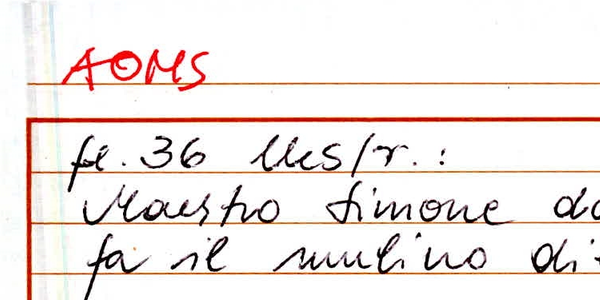 AOMS
fl. 36
Maestro Simone da
fa il mulino di